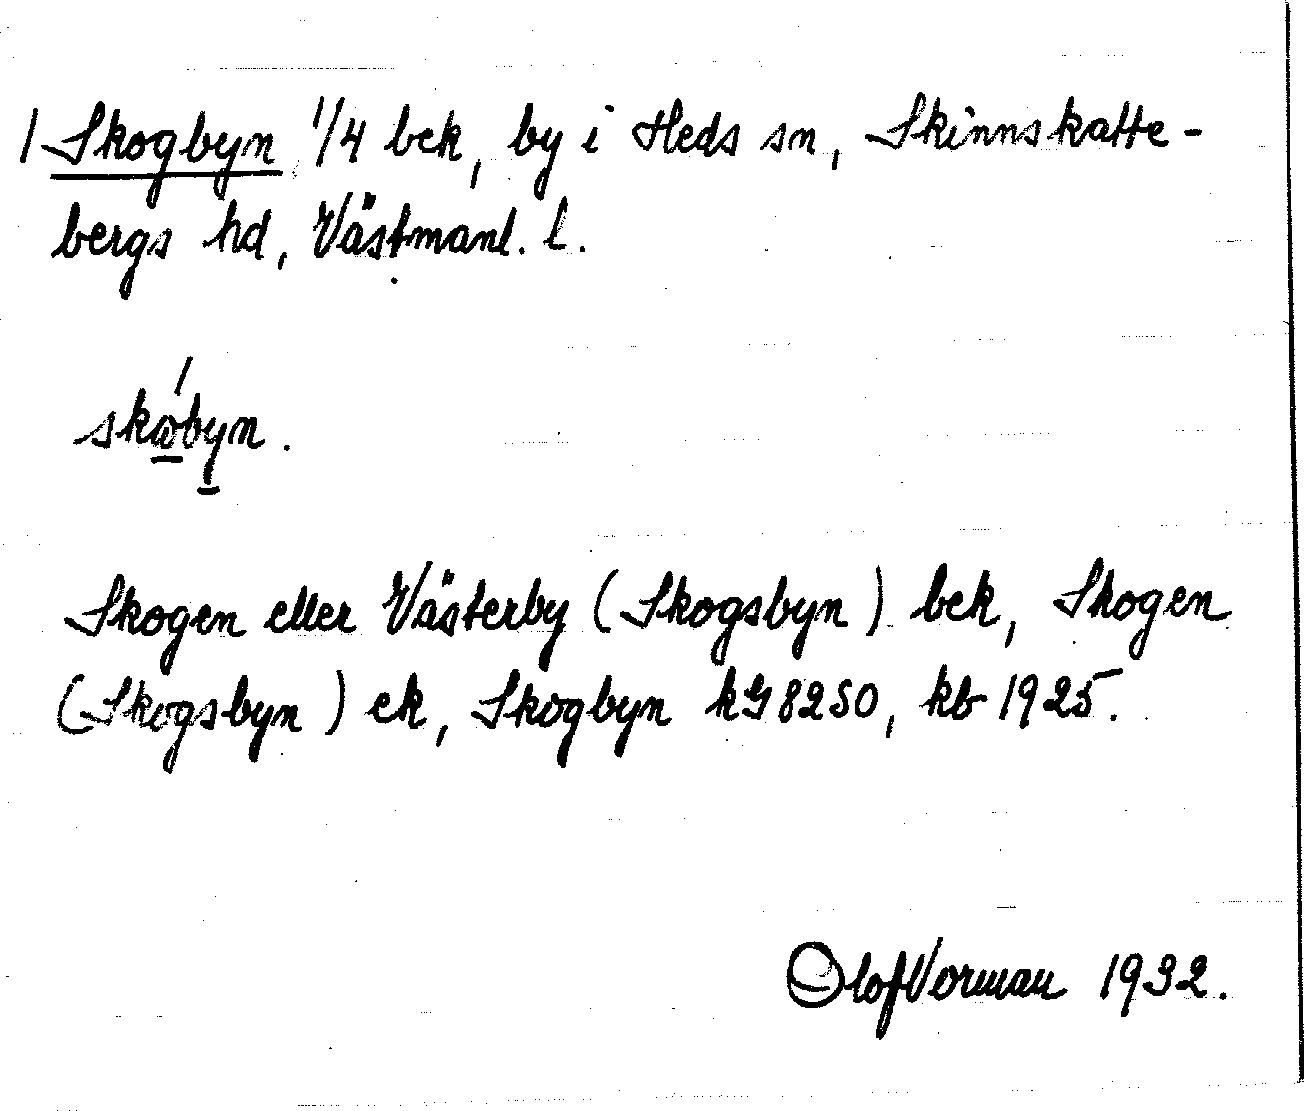 / Skogbyn 1/4 bek, by i Heds sn, Skinnskatte-
bergs hd, Västmanl. l.
skobyn.
Skogen eller Västerby (Skogsbyn) bek, Skogen
(Skogsbyn) ek, Skogbyn kG 8250, kb 1925.
Olof Vorman 1932.